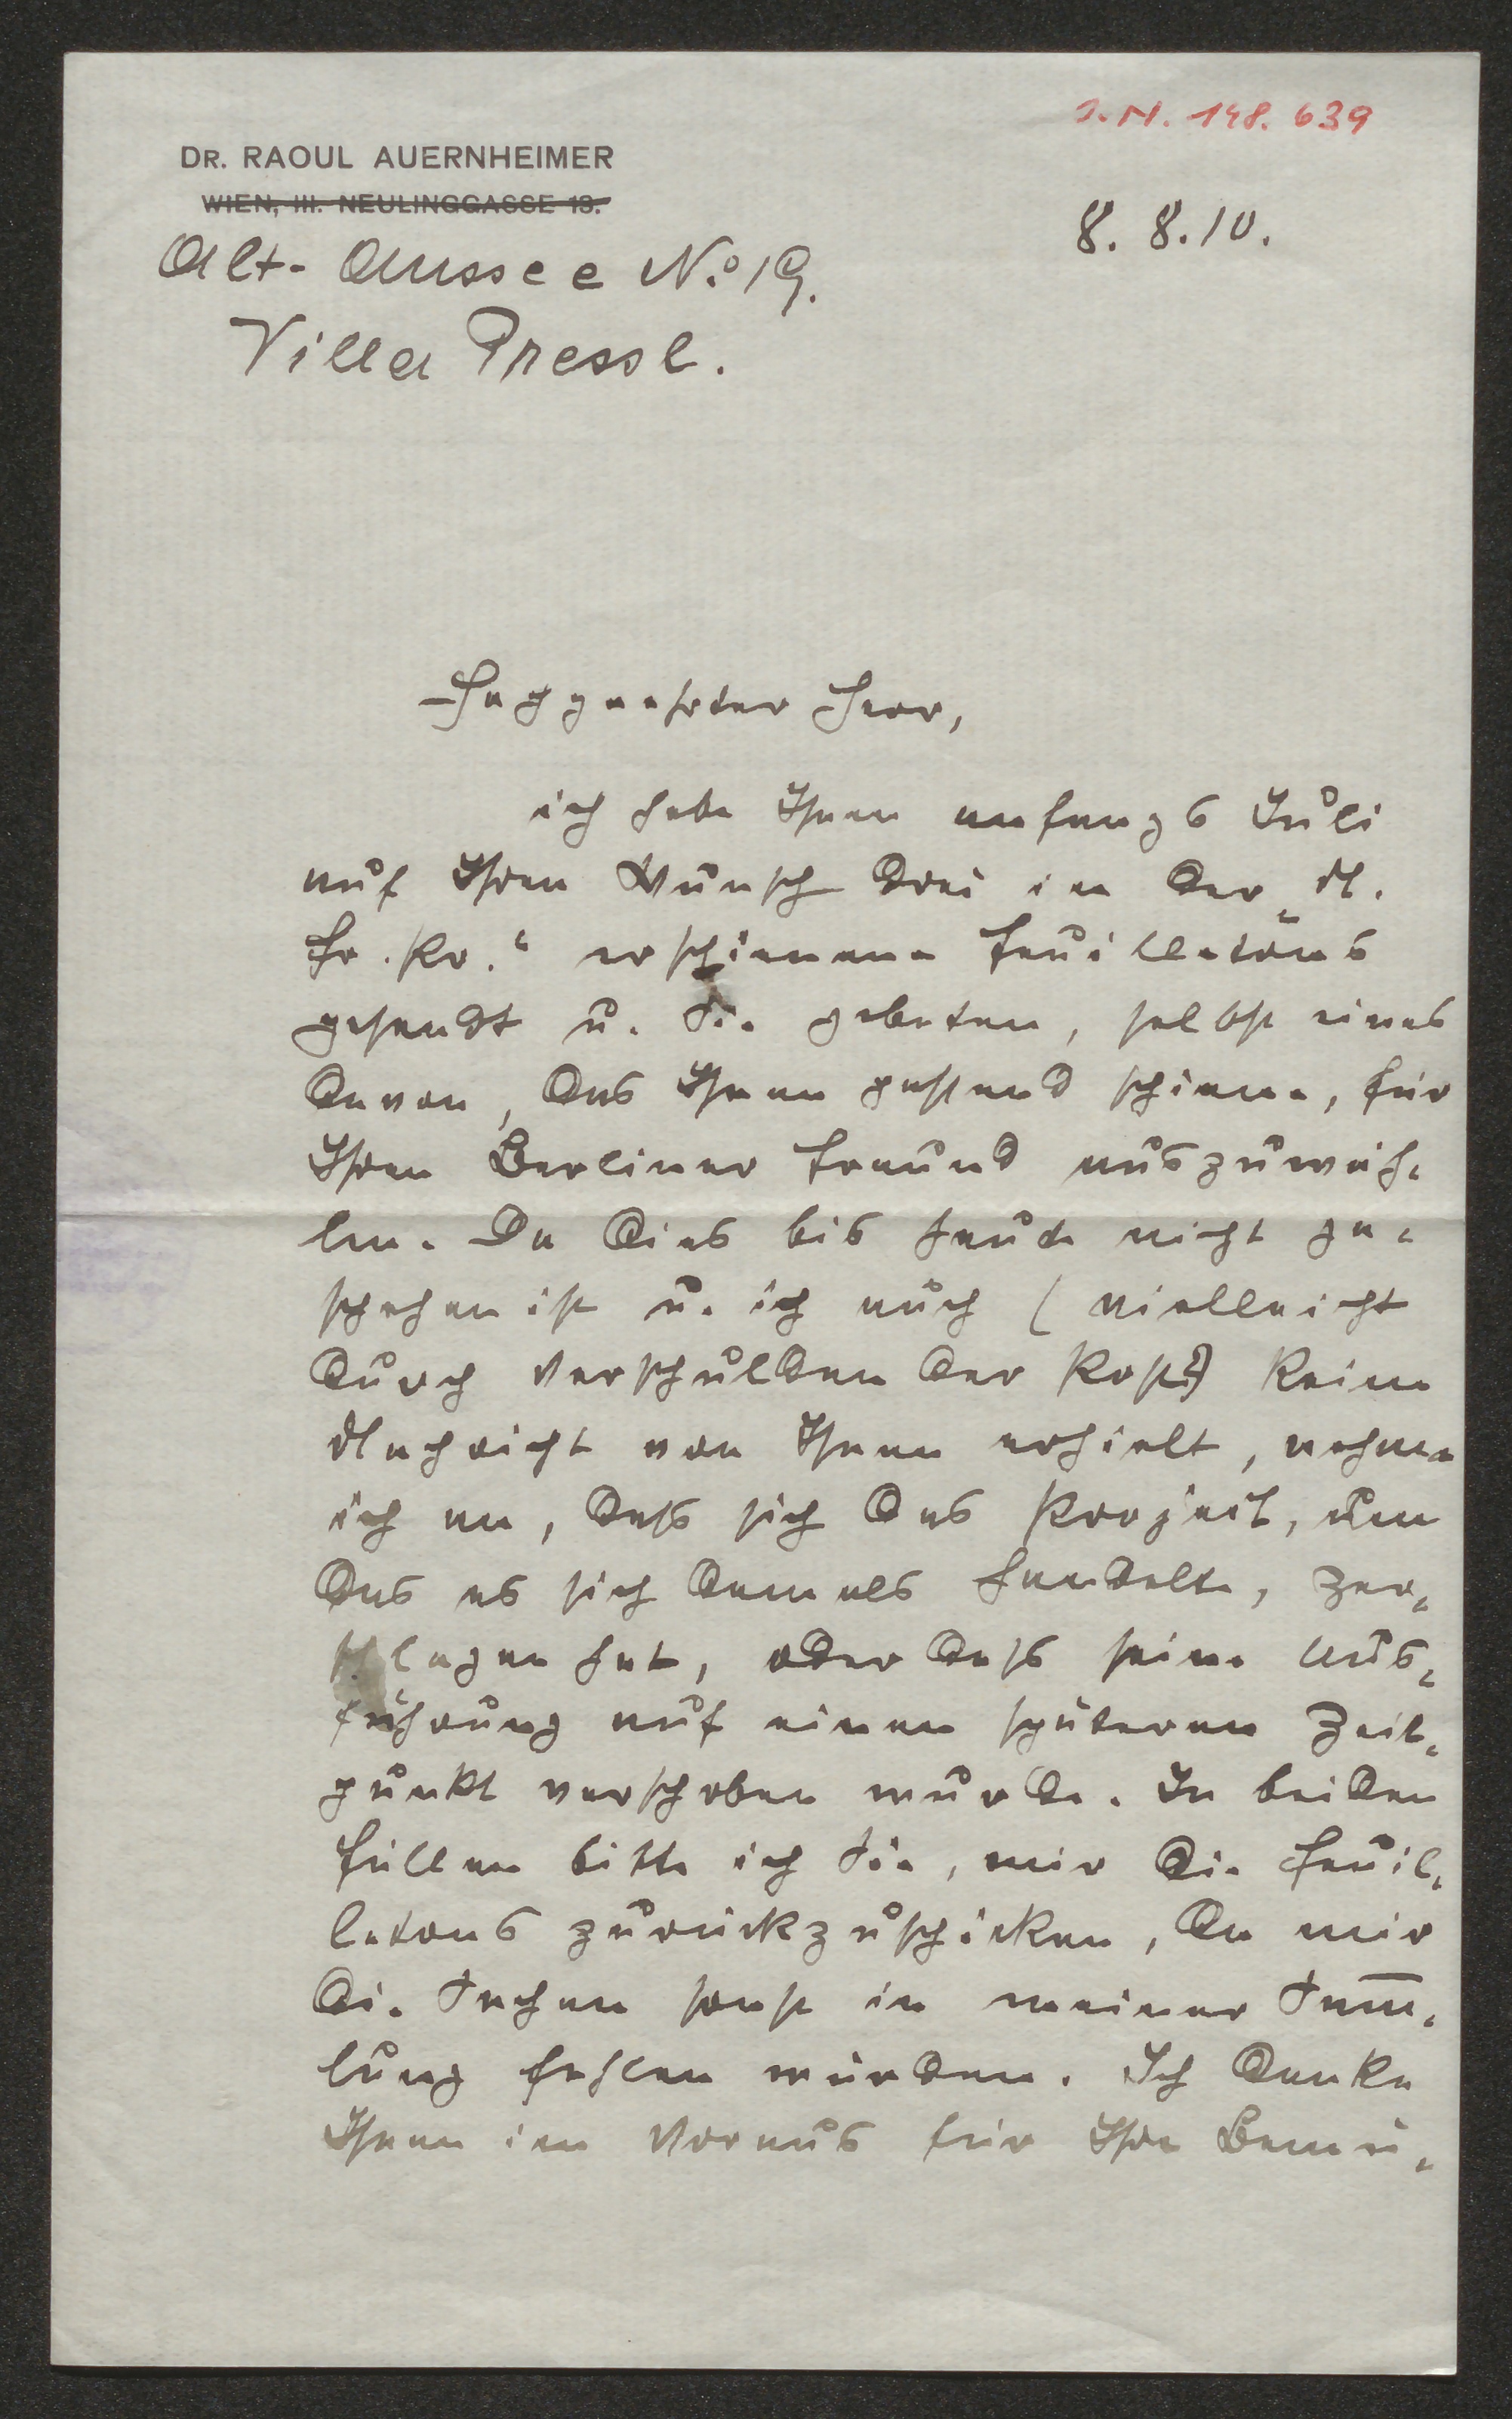 I.N. 148.639
DR. RAOUL AUERNHEIMER
WIEN, III. NEULINGGASSE 13.
8. 8. 10.
Alt-Aussee No 19.
Villa Pressl.
Hochgeehrter Herr,
ich habe Ihnen anfangs Juli
auf Ihren Wunsch drei in der „N.
Fr. Pr.“ erschienene Feuilletons
gesandt u. Sie gebeten, selbst eines
davon, das Ihnen passend schiene, für
Ihren Berliner Freund auszuwäh-
len. Da dies bis heute nicht ge-
schehen ist u. ich auch (vielleicht
durch Verschulden der Post?) keine
Nachricht von Ihnen erhielt, nehme
ich an, dass sich das Projeit, um
das es sich damals handelte, zer-
schlagen hat, oder dass seine Aus-
führung auf einen späteren Zeit-
punkt verschoben wurde. In beiden
Fällen bitte ich Sie, mir die Feuil-
letons zurückzuschicken, da mir
die Sachen sonst in meiner Sam̅-
lung fehlen würden. Ich danke
Ihnen im Voraus für Ihre Bemü-